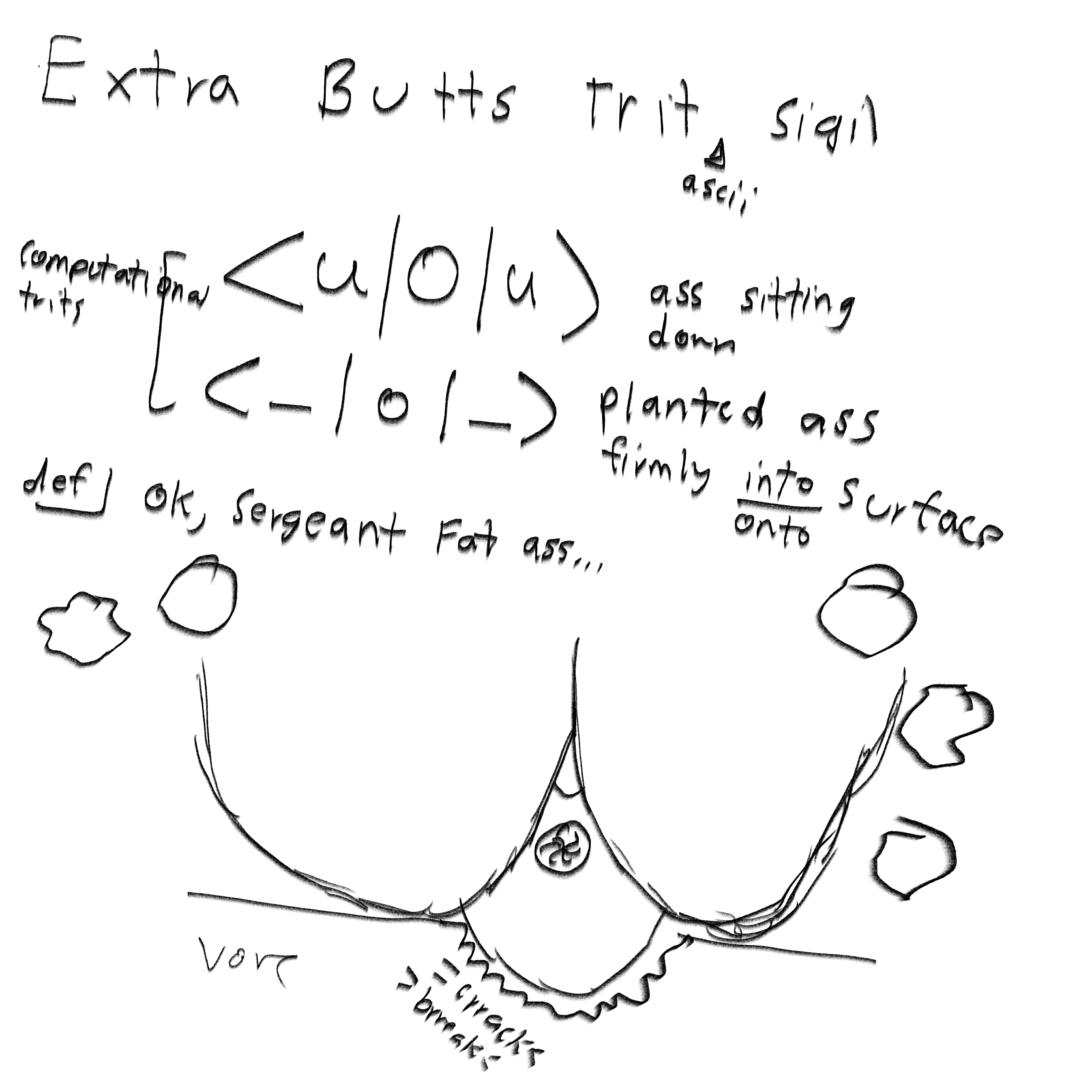 Extra Butts Trit sigil
ascii
computational trits
<u/0/u> ass sitting down
<-/0/-> planted ass firmly into onto surface
def] ok, Sergeant Fat ass...
Vore
crracks
breaks